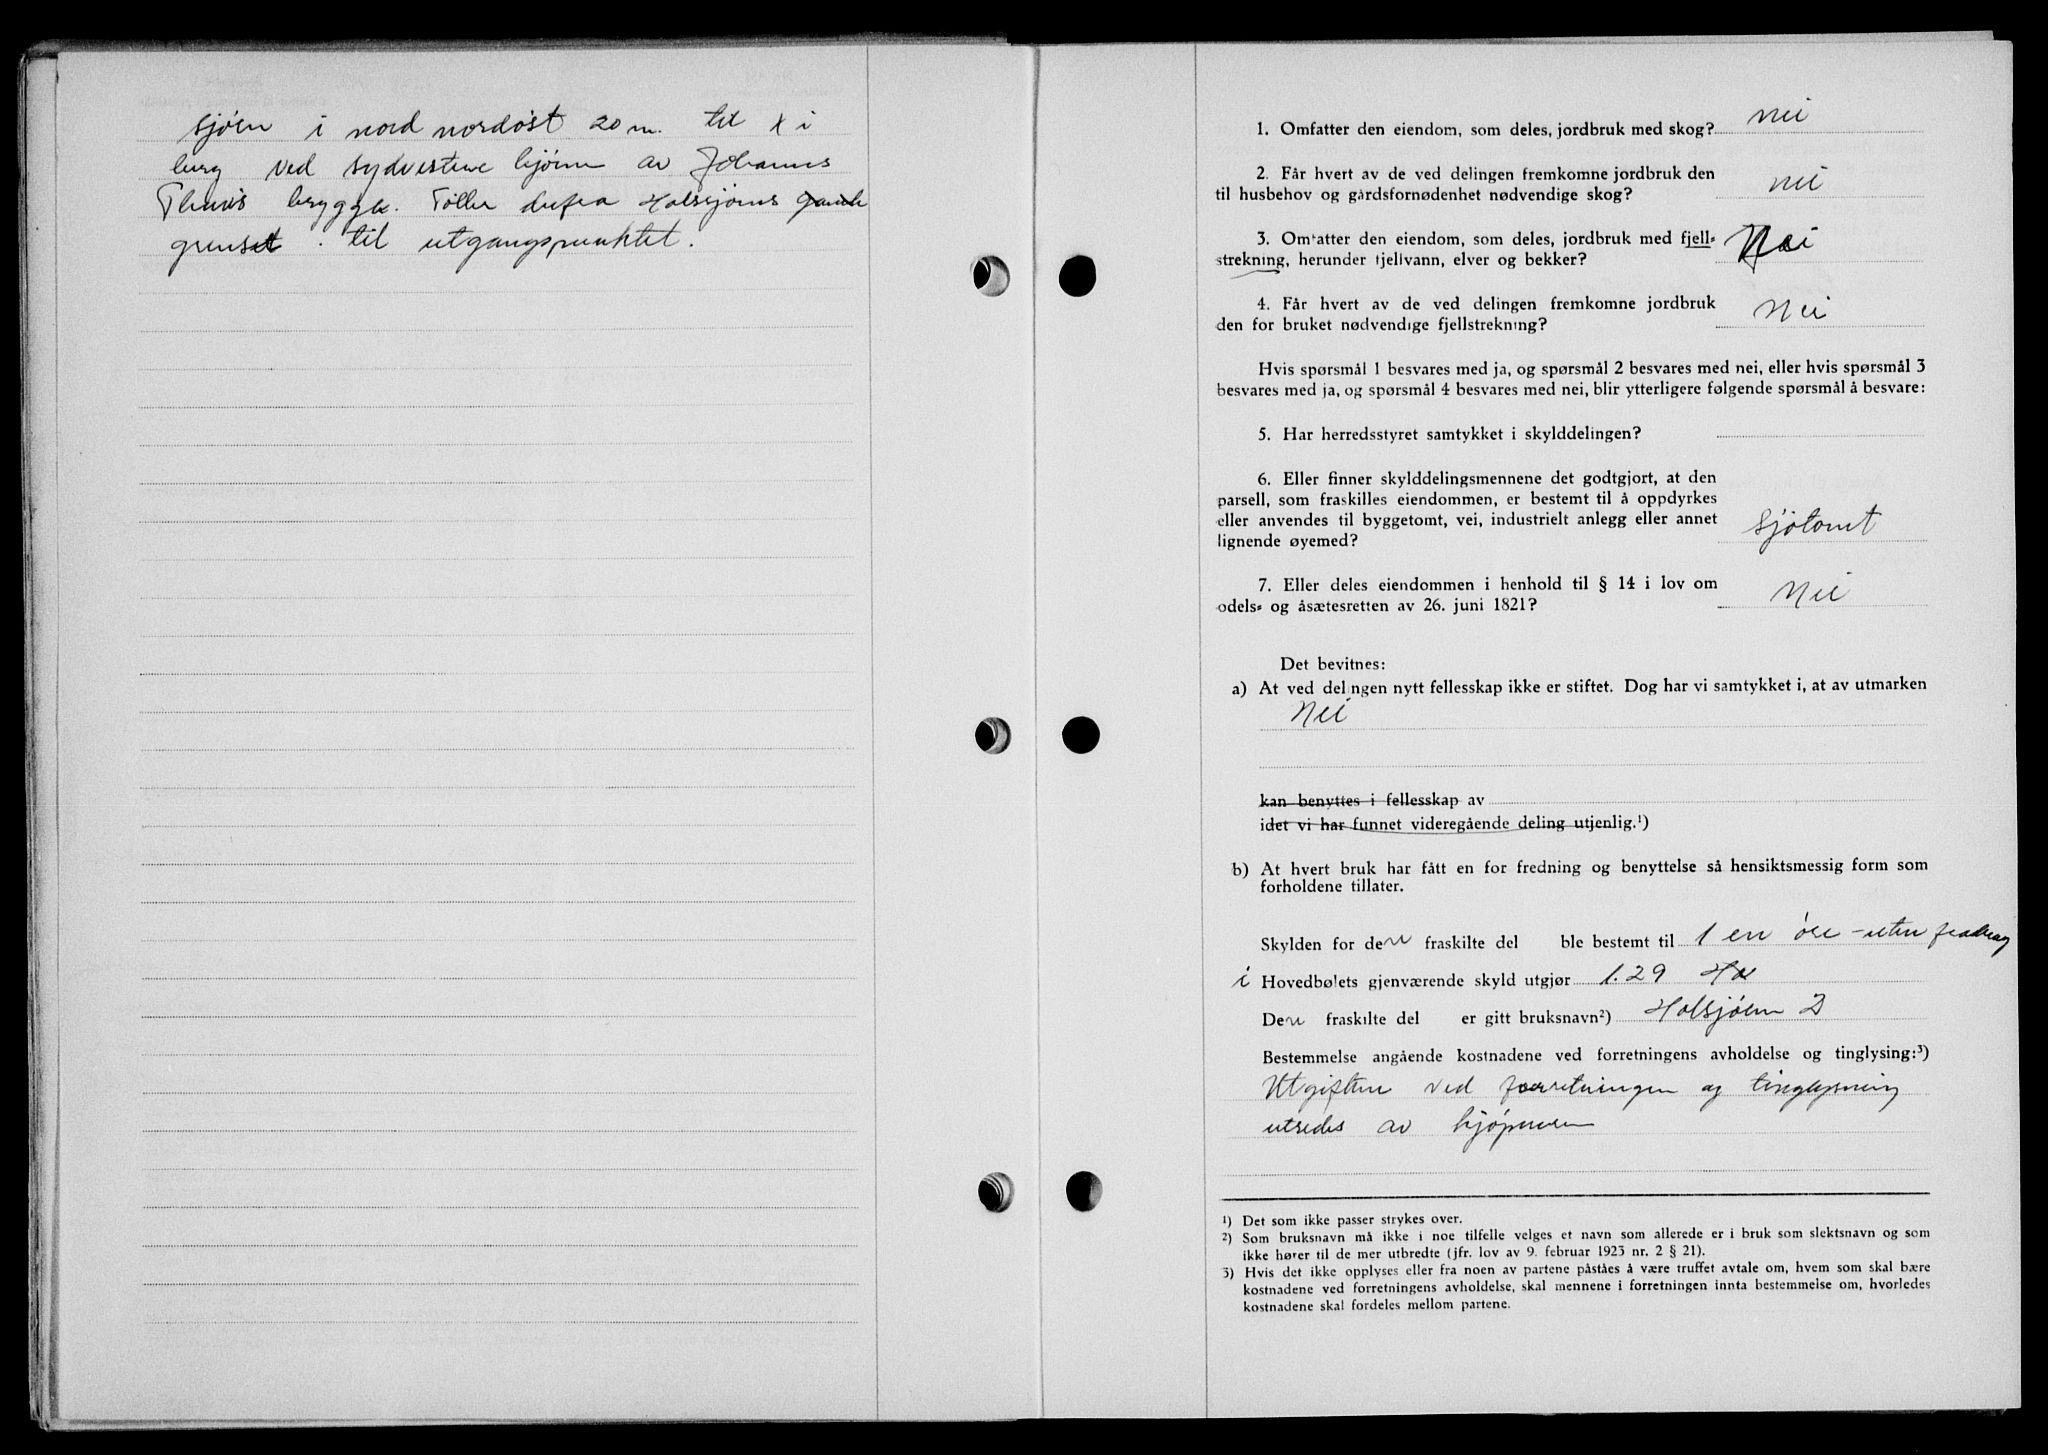 sjøen i nord nordøst 20 m. til x i
berg ved sydvestene hjørne av Johannes
brygge. Følle derfra Holssjøens gamle
grenset. til utgangspunktet.
1. Omfatter den eiendom, som deles, jordbruk med skog? nei
2. Får hvert av de ved delingen fremkomne jordbruk den
til husbehov og gårdsfornødenhet nødvendige skog? nei
3. Omfatter den eiendom, som deles, jordbruk med fjell=
strekning, herunder fjellvann, elver og bekker? Nei
4. Får hvert av de ved delingen fremkomne jordbruk
den for bruket nødvendige fjellstrekning? Nei
Hvis spørsmål 1 besvares med ja, og spørsmål 2 besvares med nei, eller hvis spørsmål 3
besvares med ja, og spørsmål 4 besvares med nei, blir ytterligere følgende spørsmål å besvare:
5. Har herredsstyret samtykket i skylddelingen?
6. Eller finner skylddelingsmennene det godtgjort, at den
parsell, som fraskilles eiendommen, er bestemt til å oppdyrkes
eller anvendes til byggetomt, vei, industrielt anlegg eller annet
lignende øyemed? sjøtomt
7. Eller deles eiendommen i henhold til § 14 i lov om
odels= og åsætesretten av 26. juni 1821? Nei
Det bevitnes:
a) At ved delingen nytt fellesskap ikke er stiftet. Dog har vi samtykket i, at av utmarken
Nei
kan benyttes i fellesskap av
idet vi har funnet videregående deling utjenlig.¹)
b) At hvert bruk har fått en for fredning og benyttelse så hensiktsmessig form som
forholdene tillater.
Skylden for den fraskilte del ble bestemt til 1 en øre - uten fradrag
i Hovedbølets gjenværende skyld utgjør 1.29
Den fraskilte del er gitt bruksnavn²) Holsjøen 2
Bestemmelse angående kostnadene ved forretningens avholdelse og tinglysing:³)
Utgiften ved forretningen og tinglysning
utredes av kjøperen
¹) Det som ikke passer strykes over.
²) Som bruksnavn må ikke i noe tilfelle velges et navn som allerede er i bruk som slektsnavn og som
ikke hører til de mer utbredte (jfr. lov av 9. februar 1923 nr. 2 § 21).
3) Hvis det ikke opplyses eller fra noen av partene påståes å være truffet avtale om, hvem som skal bære
kostnadene ved forretningens avholdelse, skal mennene i forretningen innta bestemmelse om, hvorledes
kostnadene skal fordeles mellom partene.